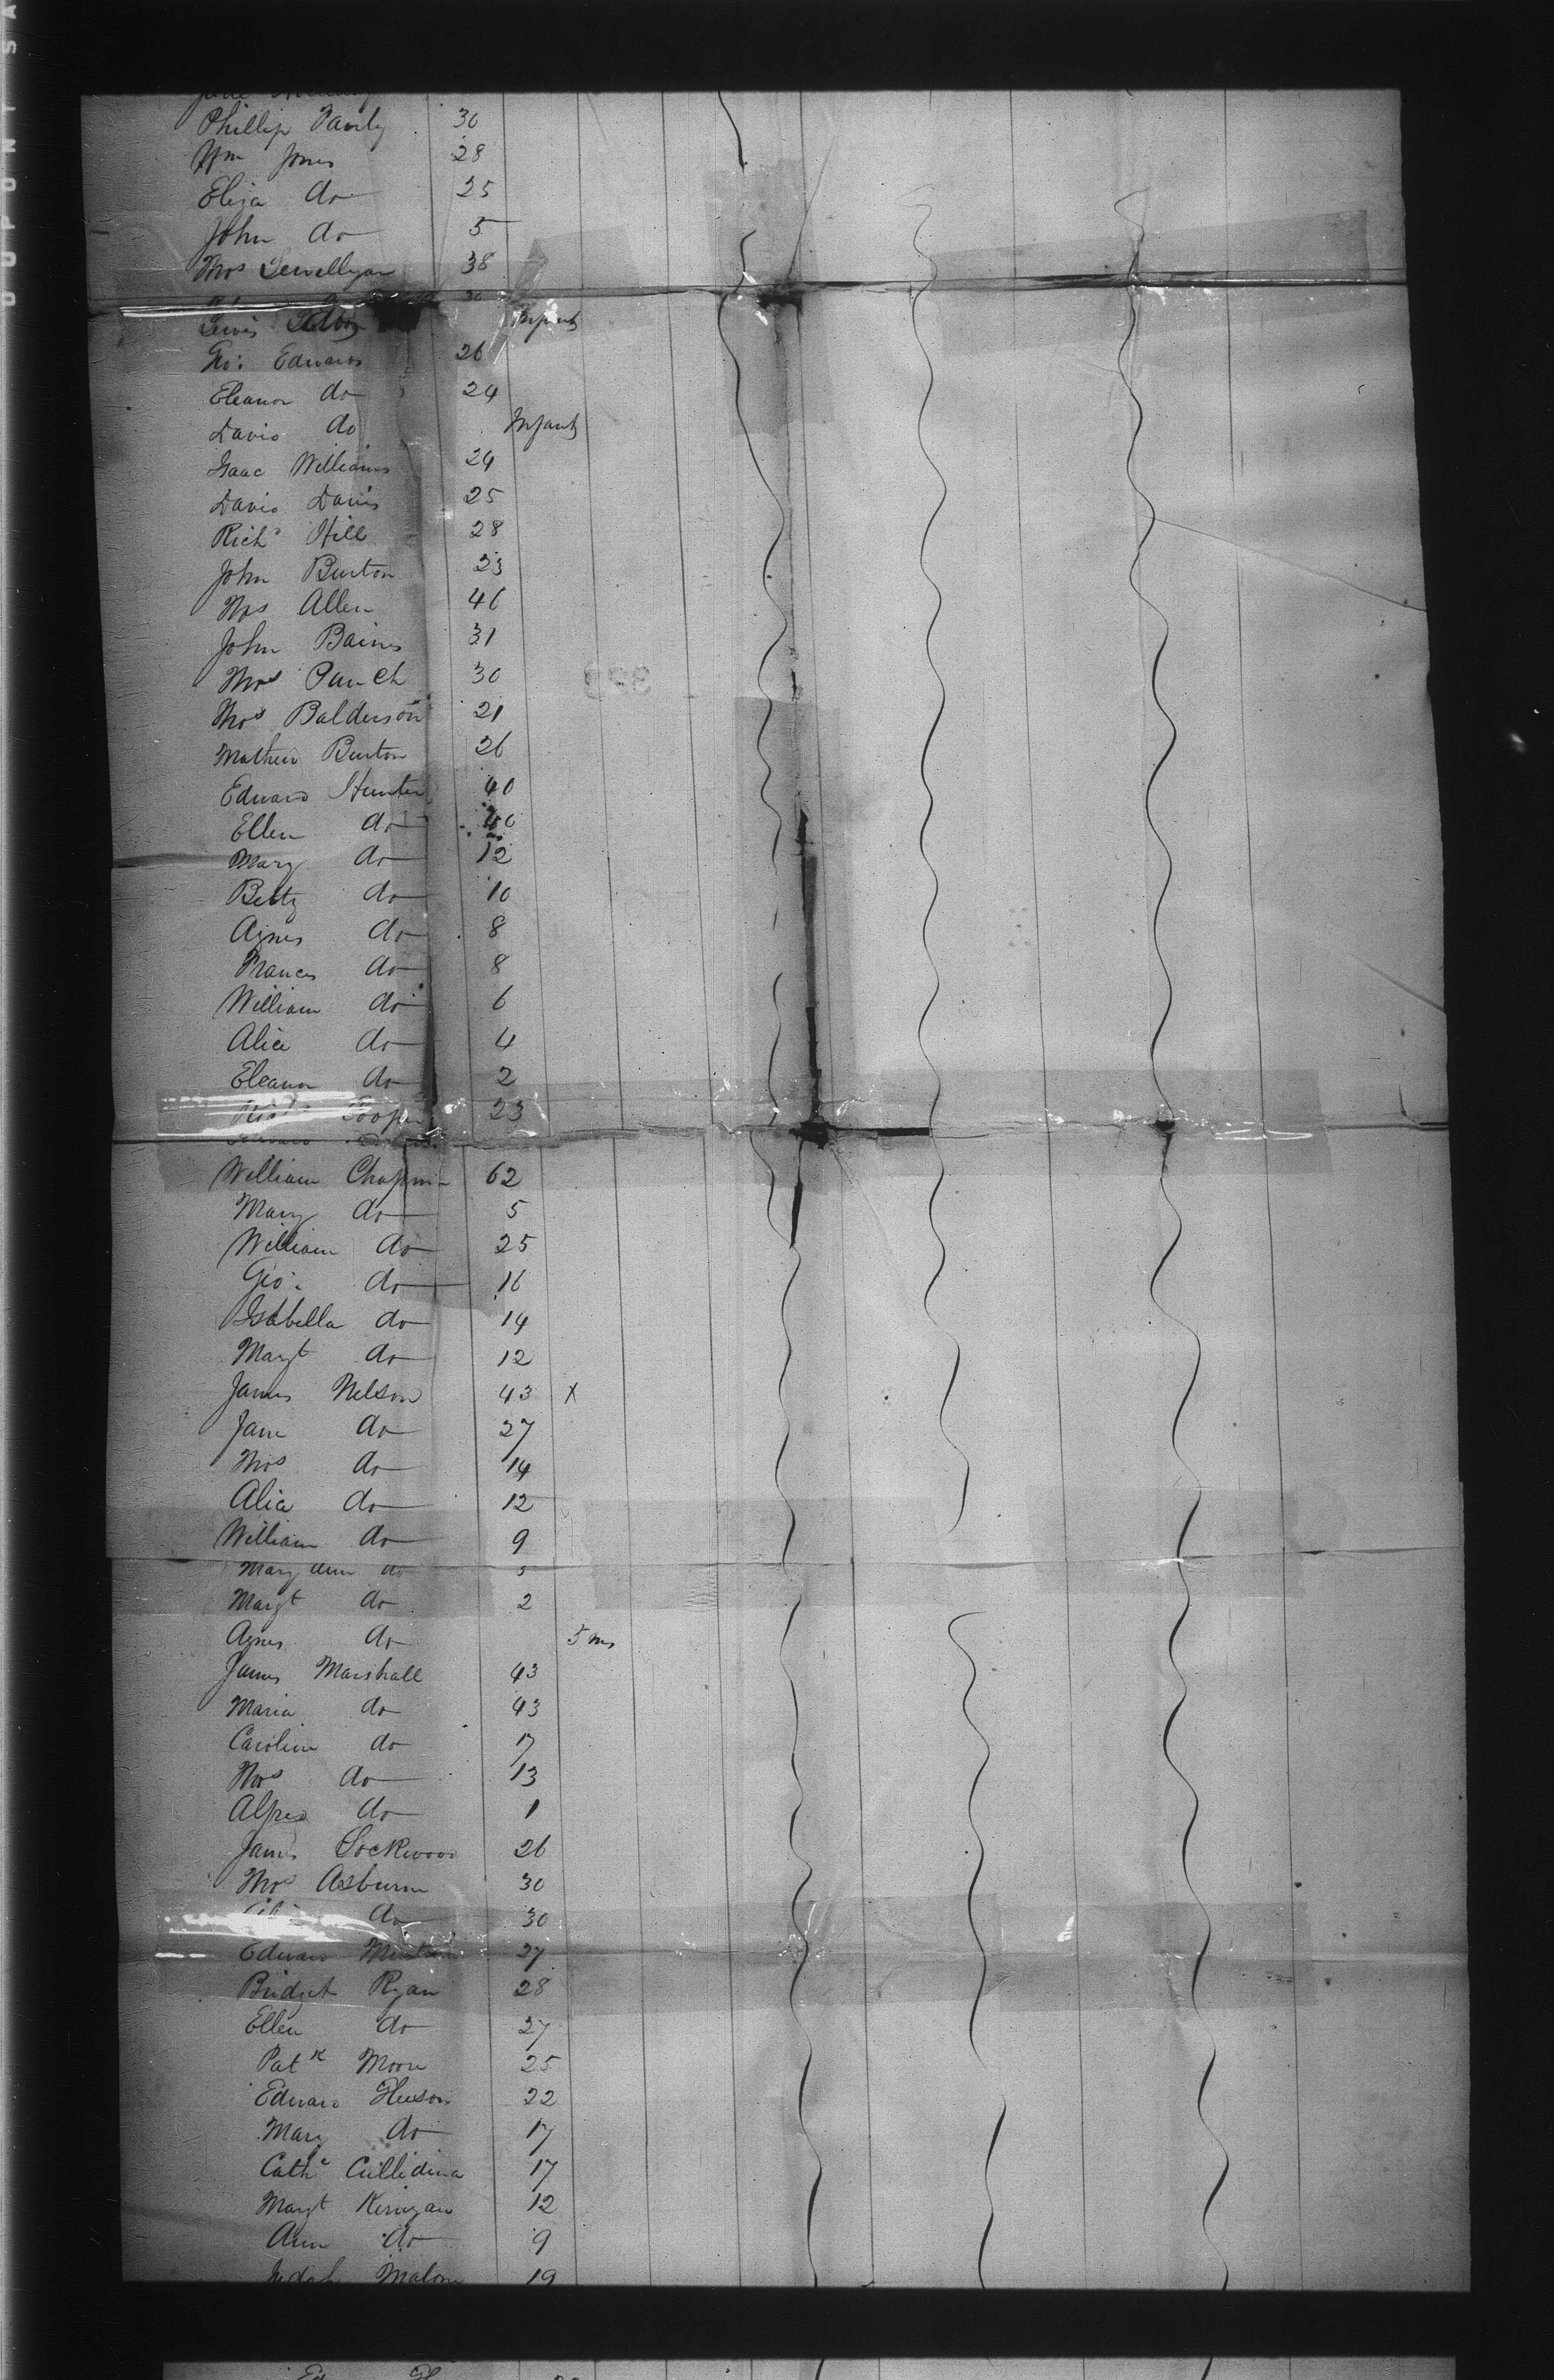 Phillip 30
Wm Jones 28
Eliza do 25
John do 5
Thos Lewellyn 38
30
Lewis Infant
Geo: Edwards 26
Eleanor do 24
David do Infant
Isaac Williams 24
David Davis 25
Richd Hill 28
John Burton 23
Thos Allen 46
John Baines 31
Thos Panch 30
Thos Balderson 21
Mathew Burton 26
Edward Hunter 40
Ellen do 40
Mary do 12
Betty do 10
Agnes do 8
Frances do 8
William do 6
Alice do 4
Eleanor do 2
23
William Chapman 62
Mary do 5
William do 25
Geo: do 16
Isabella do 14
Margt do 12
James Nelson 43 X
Jane do 27
Thos do 14
Alice do 12
William do 9
Mary Ann do 5
Margt do 2
Agnes do 5 ms
James Marshall 43
Maria do 43
Caroline do 17
Thos do 13
Alfred do 1
James Lockwood 26
Thos Asburn 30
do 30
Edward 27
Bridget Ryan 28
Ellen do 27
Patk Moore 25
Edward Gleeson 22
Mary do 17
Cathe Cullidina 17
Margt Kerwgan 12
Ann do 9
Judah Malone 19